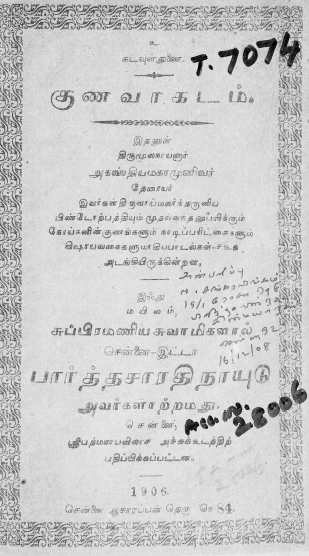 உ
கடவுள் துணை.
T. 7074
குணவாகடம்.
இதனுள்
திருமூலநாயனார்
அகஸ்தியமகாமுனிவர்
தேரையர்
இவர்கள் திருவாய்மலர்ந்தருளிய
பிண்டோற்பத்தியும்
கோய்களின் குணங்களும் நாடிப்பரிட்சைகளும்
விஷாயவகைகளுமாகிய பாடல்கள்
அடங்கியிருக்கின்றன.
அன்பளிப்பு
இஃது
மயிலம்,
சுப்பிரமணியசுவாமிகளால்
சென்னை-இட்டா
பார்த்தசாரதிநாயுடு
அவர்களாற்றமது.
16/12/08
Acc. No. 28006
சென்னை,
ஸ்ரீபத்மநாபவிலாச அச்சுக்கூடத்திற்
பதிப்பிக்கப்பட்டன.
1906
சென்னை ஆசாரப்பன் தெரு நெ-84.